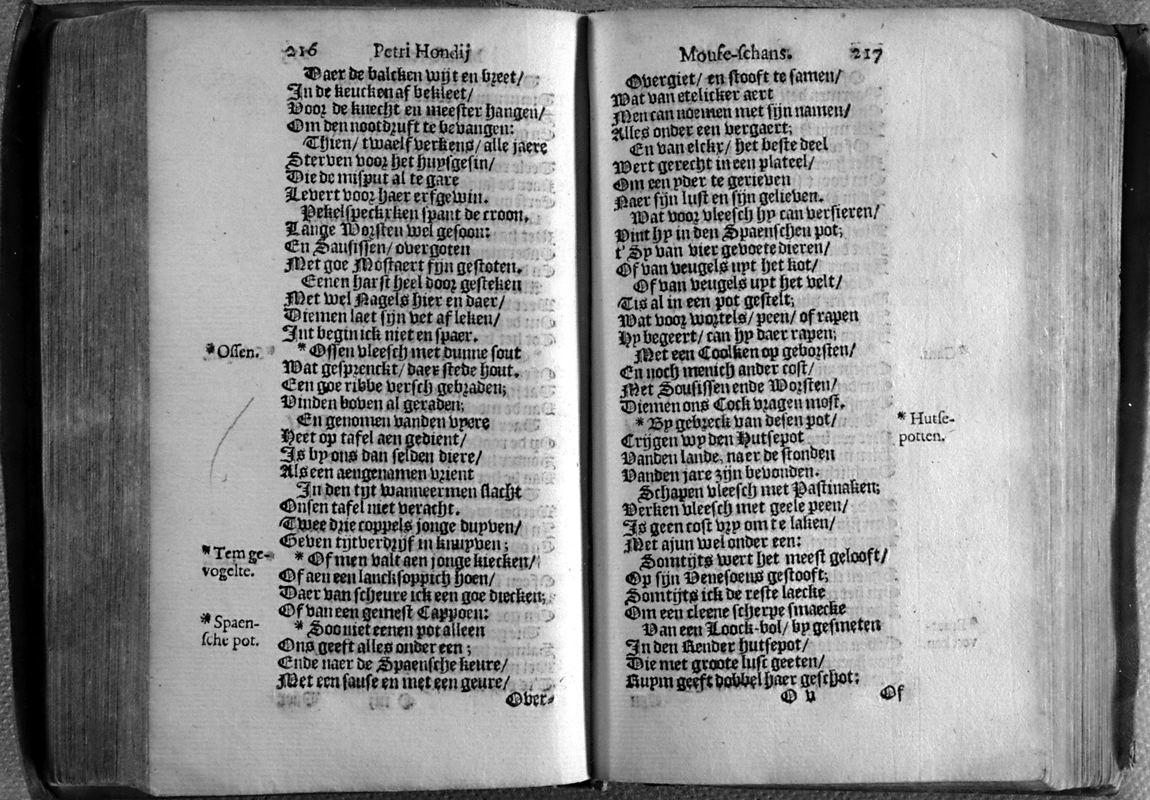 216 Petri Hondij
Daer de balcken wijt en breet/
In de keucken af bekleet/
Voor de knecht en meester hangen/
Om den nootdruft te bevangen:
Thien/ twaelf verkens/ alle jaere
Sterven voor het huysgesin/
Die de misput al te gare
Levert voor haer erfgewin.
Pekelspeckxken spant de croon,
Lange Worsten wel gesoon:
En Sausissen/ overgoten
Met goe Mostaert fijn gestoten.
Eenen harst heel door gesteken
Met wel Nagels hier en daer/
Diemen laet sijn vet af leken/
Int begin ick niet en spaer.
* Ossen.
* Ossen vleesch met dunne sout
Wat gesprenckt/ daer stede hout.
Een goe ribbe versch gebraden;
Vinden boven al geraden;
En genomen vanden vyere
Heet op tafel aen gedient/
Is by ons dan selden diere/
Als een aengenamen vrient
In den tijt wanneermen slacht
Onsen tafel niet veracht.
Twee drie coppels jonge duyven/
Geven tijtverdrijf in knuyven;
* Tem ge-
vogelte.
* Of men valt aen jonge kiecken/
Of aen een lancksoppich hoen/
Daer van scheure ick een goe diecken;
Of van een gemest Cappoen:
* Spaen-
sche pot.
* Soo niet eenen pot alleen
Ons geeft alles onder een;
Ende naer de Spaensche keure/
Met een sause en met een geure/
Over-
Mouse-schans. 217
Overgiet/ en stooft te samen/
Wat van etelicker aert
Men can noemen met sijn namen/
Alles onder een vergaert;
En van elckx/ het beste deel
Wert gerecht in een plateel/
Om een yder te gerieven
Naer sijn lust en sijn gelieven.
Wat voor vleesch hy can versieren/
Vint hy in den Spaenschen pot;
t'Sy van vier gevoete dieren/
Of van veugels uyt het kot/
Of van veugels uyt het velt/
Tis al in een pot gestelt;
Wat voor wortels/ peen/ of rapen
Hy begeert/ can hy daer rapen;
Met een Coolken op geborsten/
En noch menich ander cost/
Met Sousissen ende Worsten/
Diemen ons Cock vragen most.
* Hutse-
potten.
* By gebreck van desen pot/
Crijgen wy den Hutsepot
Vanden lande, naer de stonden
Vanden jare zijn bevonden.
Schapen vleesch met Pastinaken;
Verken vleesch met geele peen/
Is geen cost vry om te laken/
Met ajun wel onder een:
Somtijts wert het meest gelooft/
Op sijn Venesoens gestooft;
Somtijts ick de reste laecke
Om een cleene scherpe smaecke
Van een Loock-bol/ by gesmeten
In den Render hutsepot/
Die met groote lust geeten/
Ruym geeft dobbel haer geschot:
O v Of